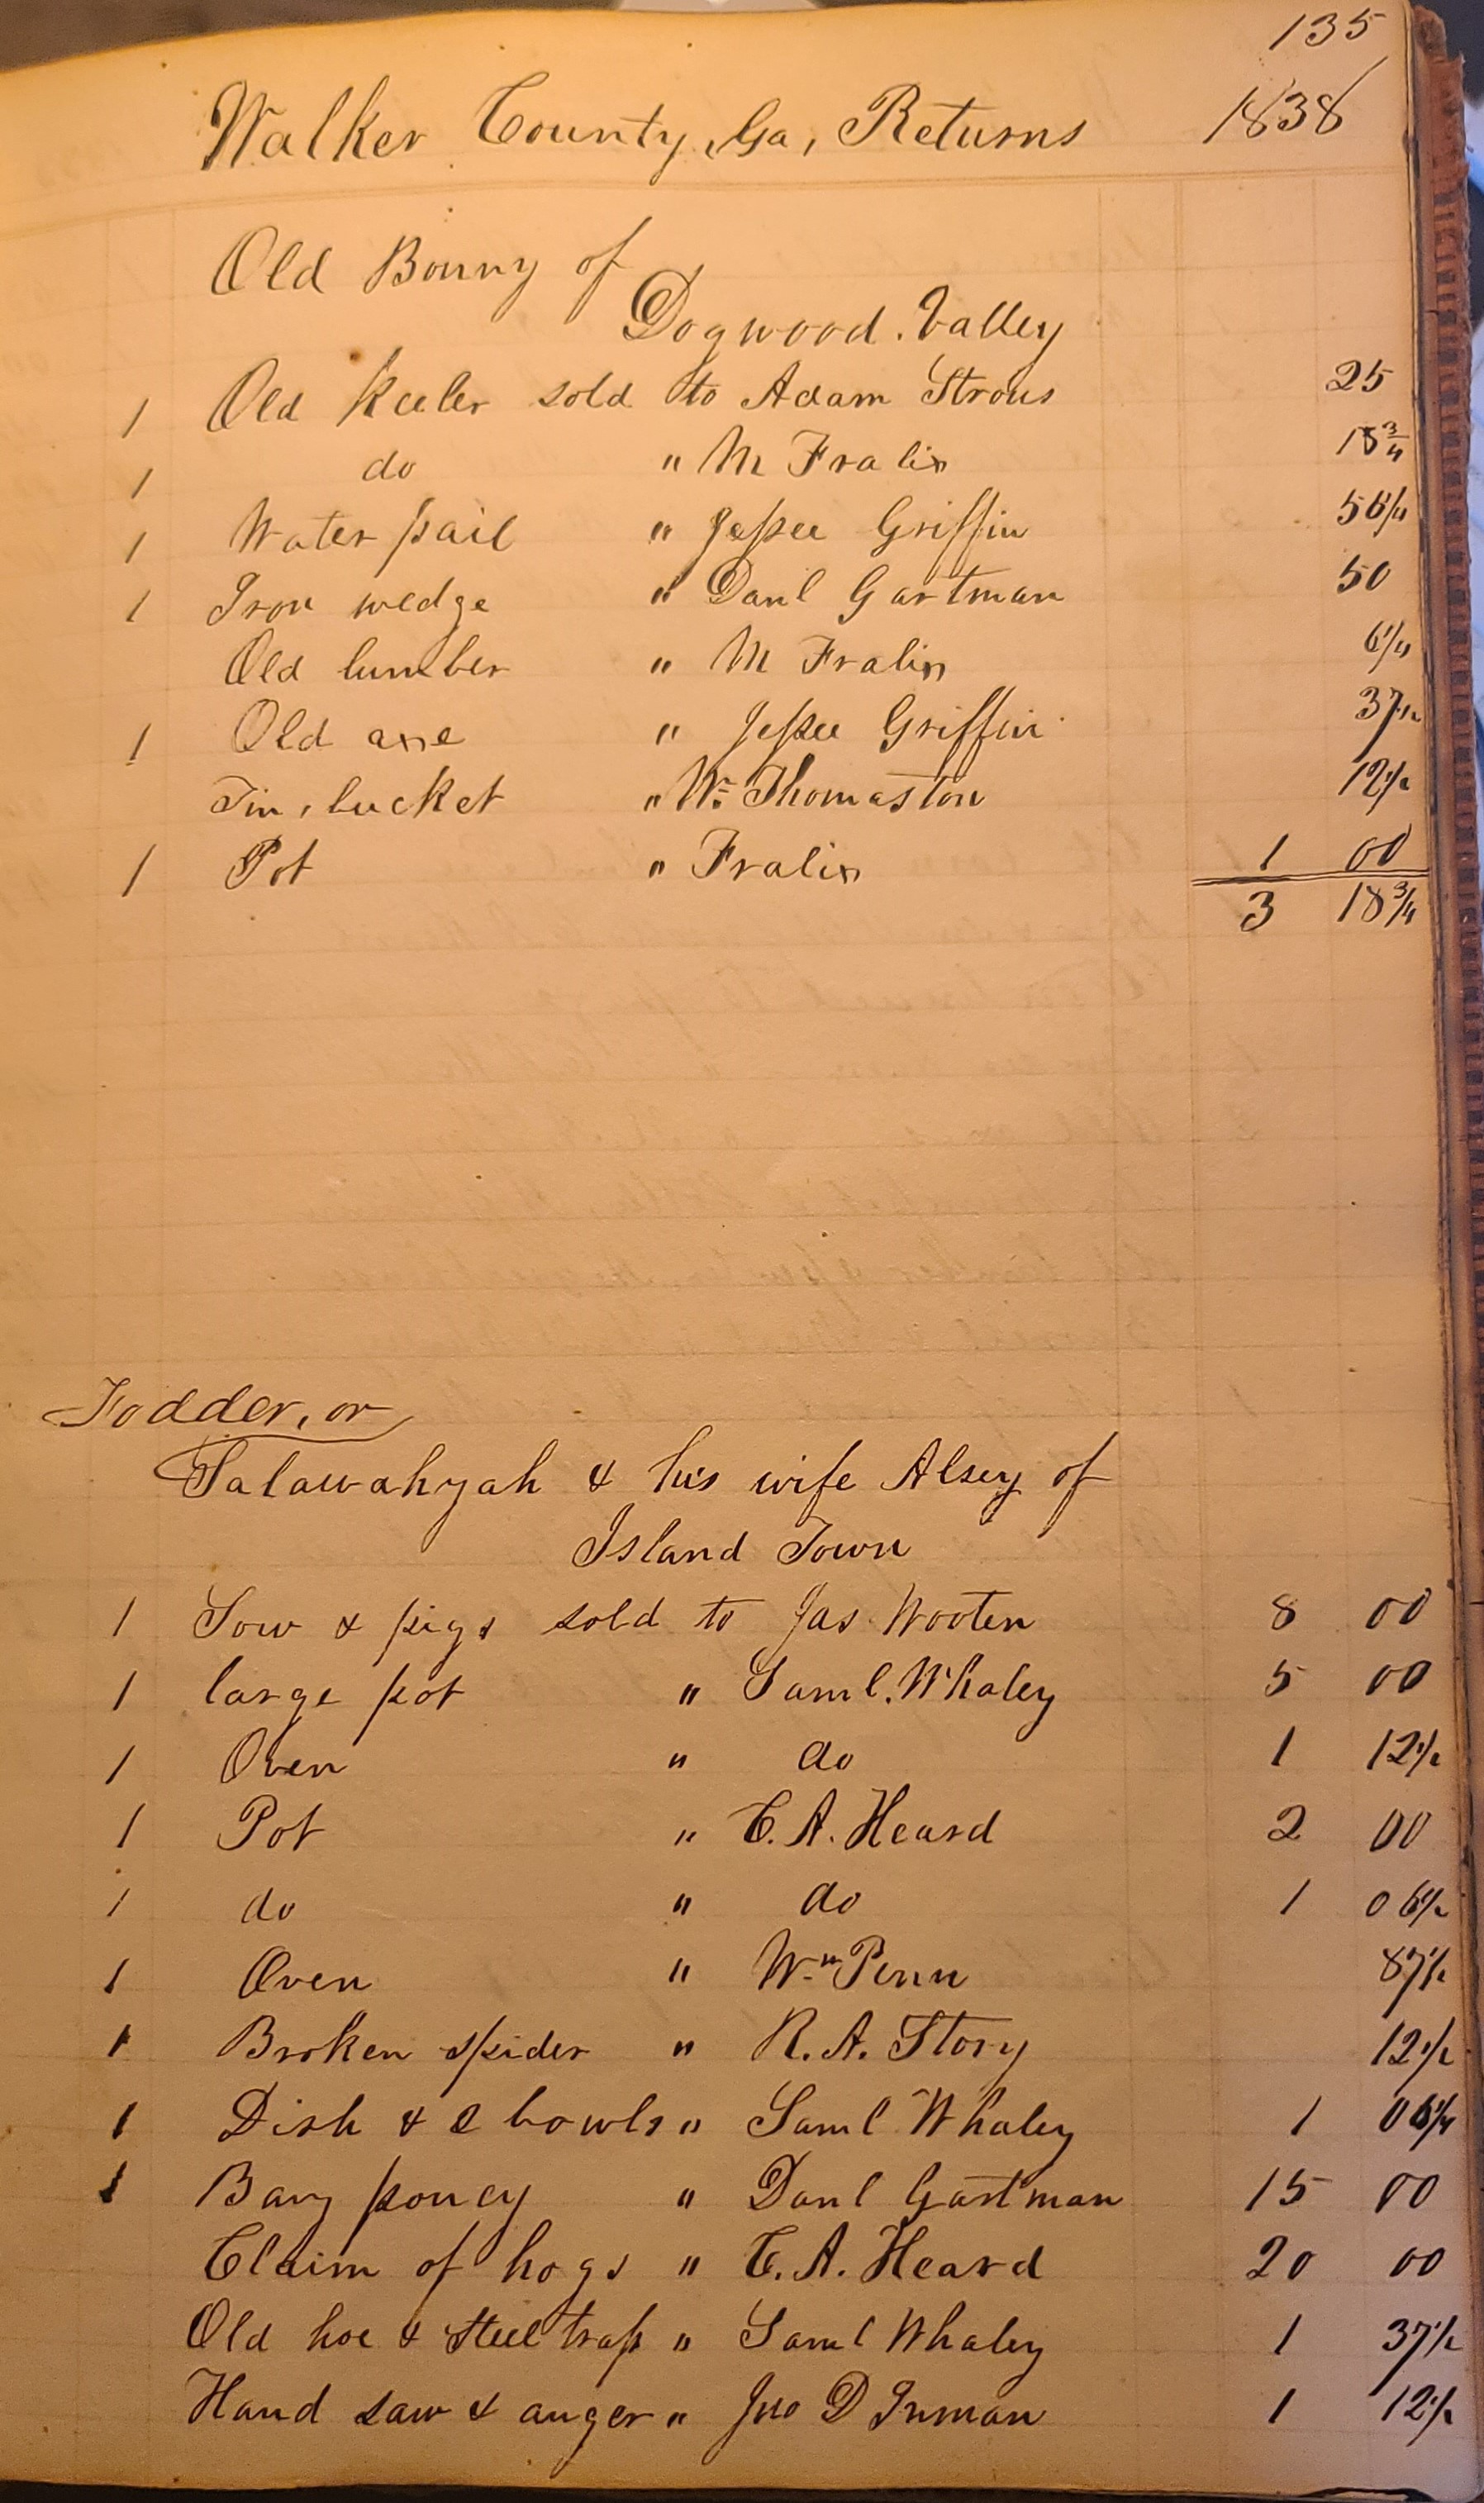 135
Walker County, Ga, Returns 1838
Old Bonny of
Dogwood. Valley
1 Old Keeler sold to Adam Strous 25
1 do " M Fralix 18 3/4
1 Water pail " Jessee Griffin 56 1/4
1 Iron wedge " Danl Gartman 50
Old lumber " M Fralix 6 1/4
1 Old axe " Jessee Griffin 37 1/2
Tin bucket " Wm Thomaston 12 1/2
1 Pot " Fralix 1 00
3 18 3/4
Fodder, or
Talawahyah & his wife Alsey of
Island Town
1 Sow & pigs sold to Jas Wooten 8 00
1 large pot " Saml. Whaley 5 00
1 Oven " do 1 12 1/2
1 Pot " C. A. Heard 2 00
1 do " do 1 06 1/2
1 Oven " Wm Penn 87 1/2
1 Broken spider " R. A. Story 12 1/2
1 Dish & 2 bowls " Saml Whaley 1 06 1/4
1 Bay poney " Danl Gartman 15 00
Claim of hogs " C. A. Heard 20 00
Old hoe & steel trap " Saml Whaley 1 37 1/2
Hand saw & auger " Jno D Inman 1 12 1/2